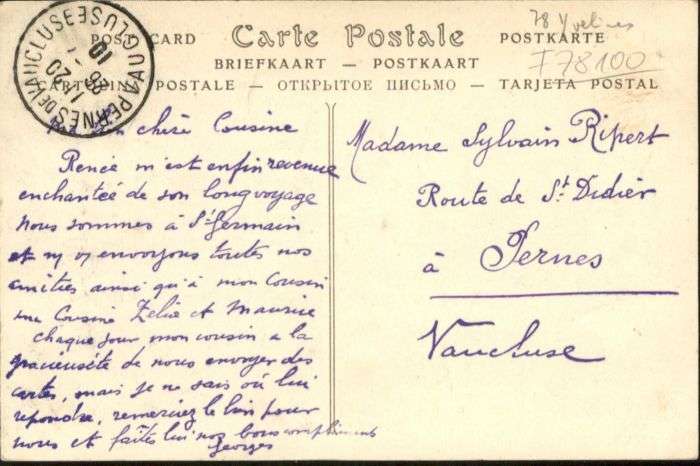 POST CARD Carte Postale POSTKARTE
BRIEFKAART — POSTKAART
POSTALE — ОТКРЫТОЕ ПИСЬМО — TARJETA POSTAL
PERNES DE VAUCLUSE VAUCLUSE
78 Yvelines
F78100
chère Cousine
Renée m'est enfin revenue
enchantée de son long voyage
nous sommes à St Germain
et envoyons toutes nos
amitiés ainsi qu'à mon Cousin
ma Cousine Zélie et Maurice
chaque jour mon cousin a la
gracieuseté de nous envoyer des
cartes, mais je ne sais où lui
repondre, remerciez le bien pour
nous et faites lui nos bons compliments
Georges
Madame Sylvain Ripert
Route de St Didier
à Pernes
Vaucluse